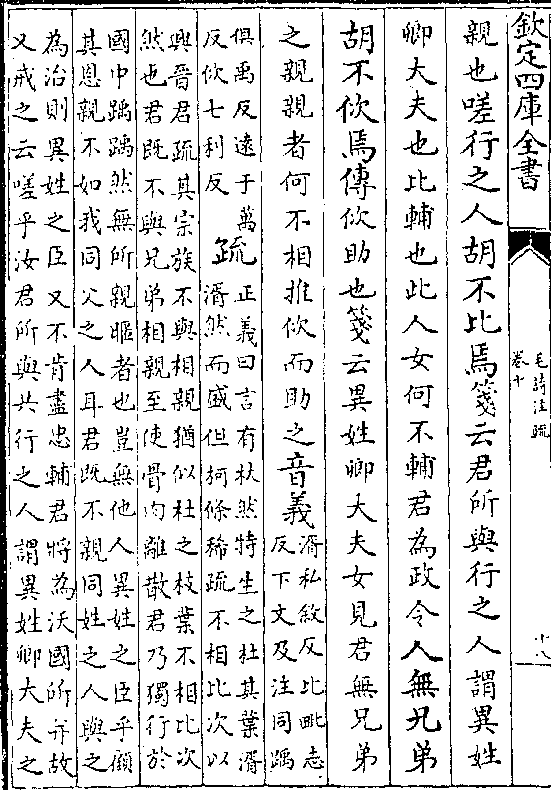 欽定四庫全書
毛詩注疏
卷十
十八
親也嗟行之人胡不比焉箋云君所與行之人謂異姓
卿大夫也比輔也此人女何不輔君為政令人無兄弟
胡不佽焉傳佽助也箋云異姓卿大夫女見君無兄弟
之親親者何不相推佽而助之音義
湑私敘反比毗志
反下文及注同踽
俱禹反遠于萬
反佽七利反
疏
正義曰言有杕然特生之杜其葉湑
湑然而盛但柯條稀疏不相比次以
興晉君疏其宗族不與相親猶似杜之枝葉不相比次
然也君既不與兄弟相親至使骨肉離散君乃獨行於
國中踽踽然無所親暱者也豈無他人異姓之臣乎顧
其恩親不如我同父之人耳君既不親同姓之人與之
為治則異姓之臣又不肯盡忠輔君將為沃國所并故
又戒之云嗟乎汝君所與共行之人謂異姓卿大夫之